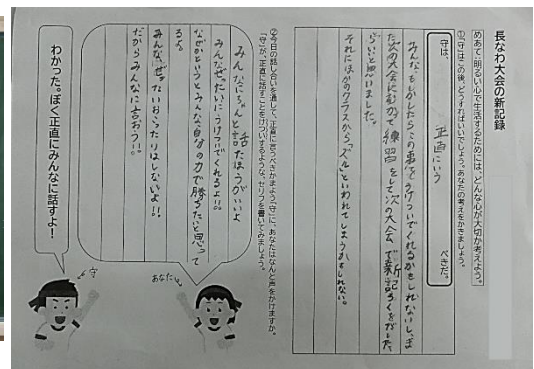 長なわ大会の新記録
めあて 明るい心で生活するためには、どんな心が大切か考えよう。
①「守」はこの後、どうすればいいでしょう。あなたの考えをかきましょう。
守は、 正直にいう べきだ。
みんな、もしかしたらこの事をうけついでくれるかもしれないし、ま
た次の大会に むかって練習をして次の大会で新記ろくをだした
らいいと思いました。
それにほかのクラスから「ズル」といわれてしまうかもしれない。
②今日の話し合いを通して、正直に言うべきかまよう「守」に、あなたはなんと声をかけますか。
「守」が、正直に話すことをけついするような、セリフを書いてみましょう。
みんなにちゃんと話したほうがいいよ
みんなぜったいにうけついでくれるよ!!
なぜかというとみんな自分の力で勝ちたいと思って
るよ。
みんなぜったいおこったりはしないよ!!
だからみんなに言おう!!
あなた
守
わかった。ぼく正直にみんなに話すよ!